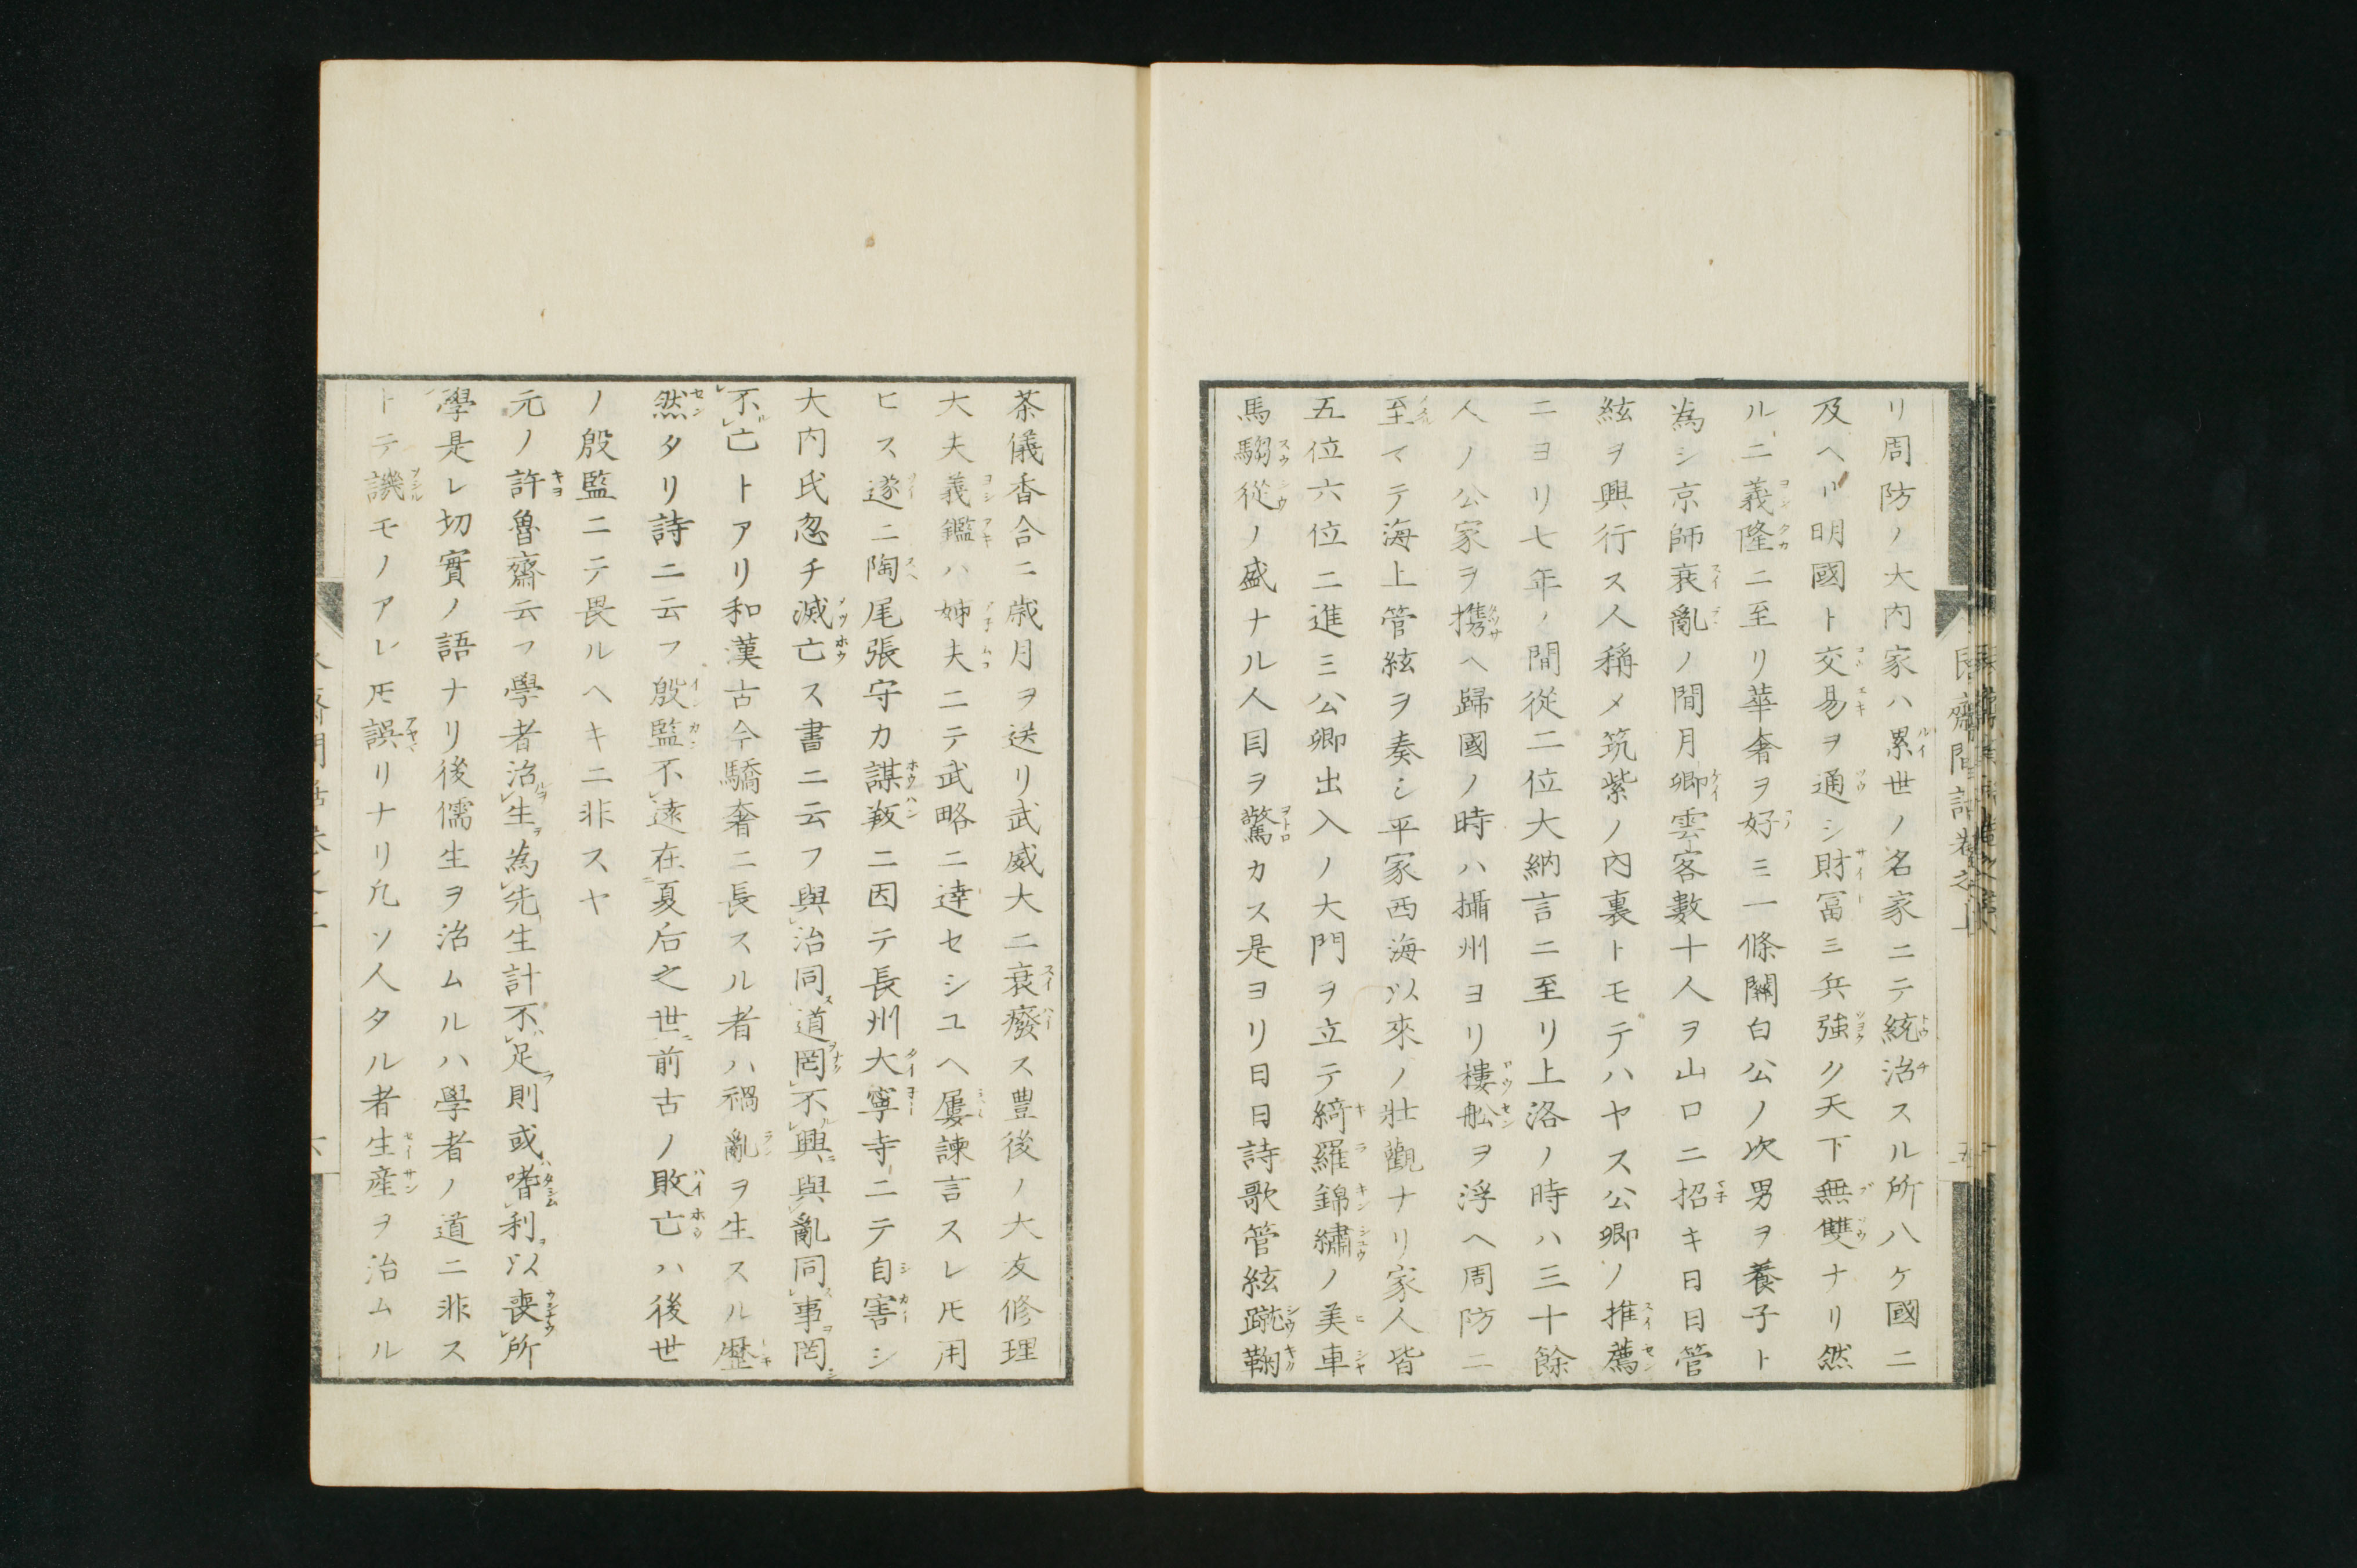 リ周防ノ大内家ハ累世ノ名家ニテ統治スル所八ケ國ニ
及ヘリ明國ト交易ヲ通シ財冨ミ兵強ク天下無雙ナリ然
ルニ義隆ニ至リ華奢ヲ好ミ一條關白公ノ次男ヲ養子ト
為シ京師衰亂ノ間月卿雲客數十人ヲ山口ニ招キ日日管
絃ヲ興行ス人稱メ筑紫ノ内裏トモテハヤス公卿ノ推薦
ニヨリ七年ノ間從二位大納言ニ至リ上洛ノ時ハ三十餘
人ノ公家ヲ携ヘ歸國ノ時ハ攝州ヨリ樓舩ヲ浮ヘ周防ニ
至マテ海上管絃ヲ奏シ平家西海以來ノ壯觀ナリ家人皆
五位六位ニ進ミ公卿出入ノ大門ヲ立テ綺羅錦繡ノ美車
馬騶從ノ盛ナル人目ヲ驚カス是ヨリ日日詩歌管絃蹴鞠
茶儀香合ニ歳月ヲ送リ武威大ニ衰癈ス豊後ノ大友修理
大夫義鑑ハ姉夫ニテ武略ニ達セシユヘ屢諫言スレ𪜈用
ヒス遂ニ陶尾張守カ謀叛ニ因テ長州大寧寺ニテ自害シ
大内氏忽チ滅亡ス書ニ云フ與治同道罔不興與亂同事罔
不亡トアリ和漢古今驕奢ニ長スル者ハ禍亂ヲ生スル歷
然タリ詩ニ云フ殷監不遠在夏后之世前古ノ敗亡ハ後世
ノ殷監ニテ畏ルヘキニ非スヤ
元ノ許魯齋云フ學者治生為先生計不足則或嗜利以喪所
學是レ切實ノ語ナリ後儒生ヲ治ムルハ學者ノ道ニ非ス
トテ譏モノアレ𪜈誤リナリ凡ソ人タル者生産ヲ治ムル